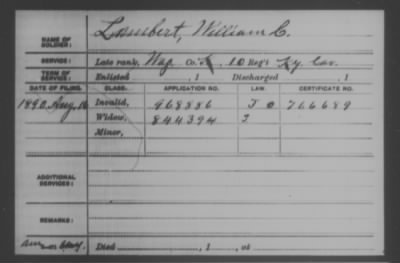 NAME OF SOLDIER: Lambert, William C.
SERVICE: Late rank, Wag Co. , 10 Reg't Ky. Cav.
TERM OF SERVICE: Enlisted , 1 Discharged , 1
DATE OF FILING. CLASS. APPLICATION NO. LAW. CERTIFICATE NO.
1890, Aug. 16 Invalid, 968886 J 766689
Widow, 844394 J
Minor,
ADDITIONAL SERVICES:
REMARKS:
Died , 1 , at